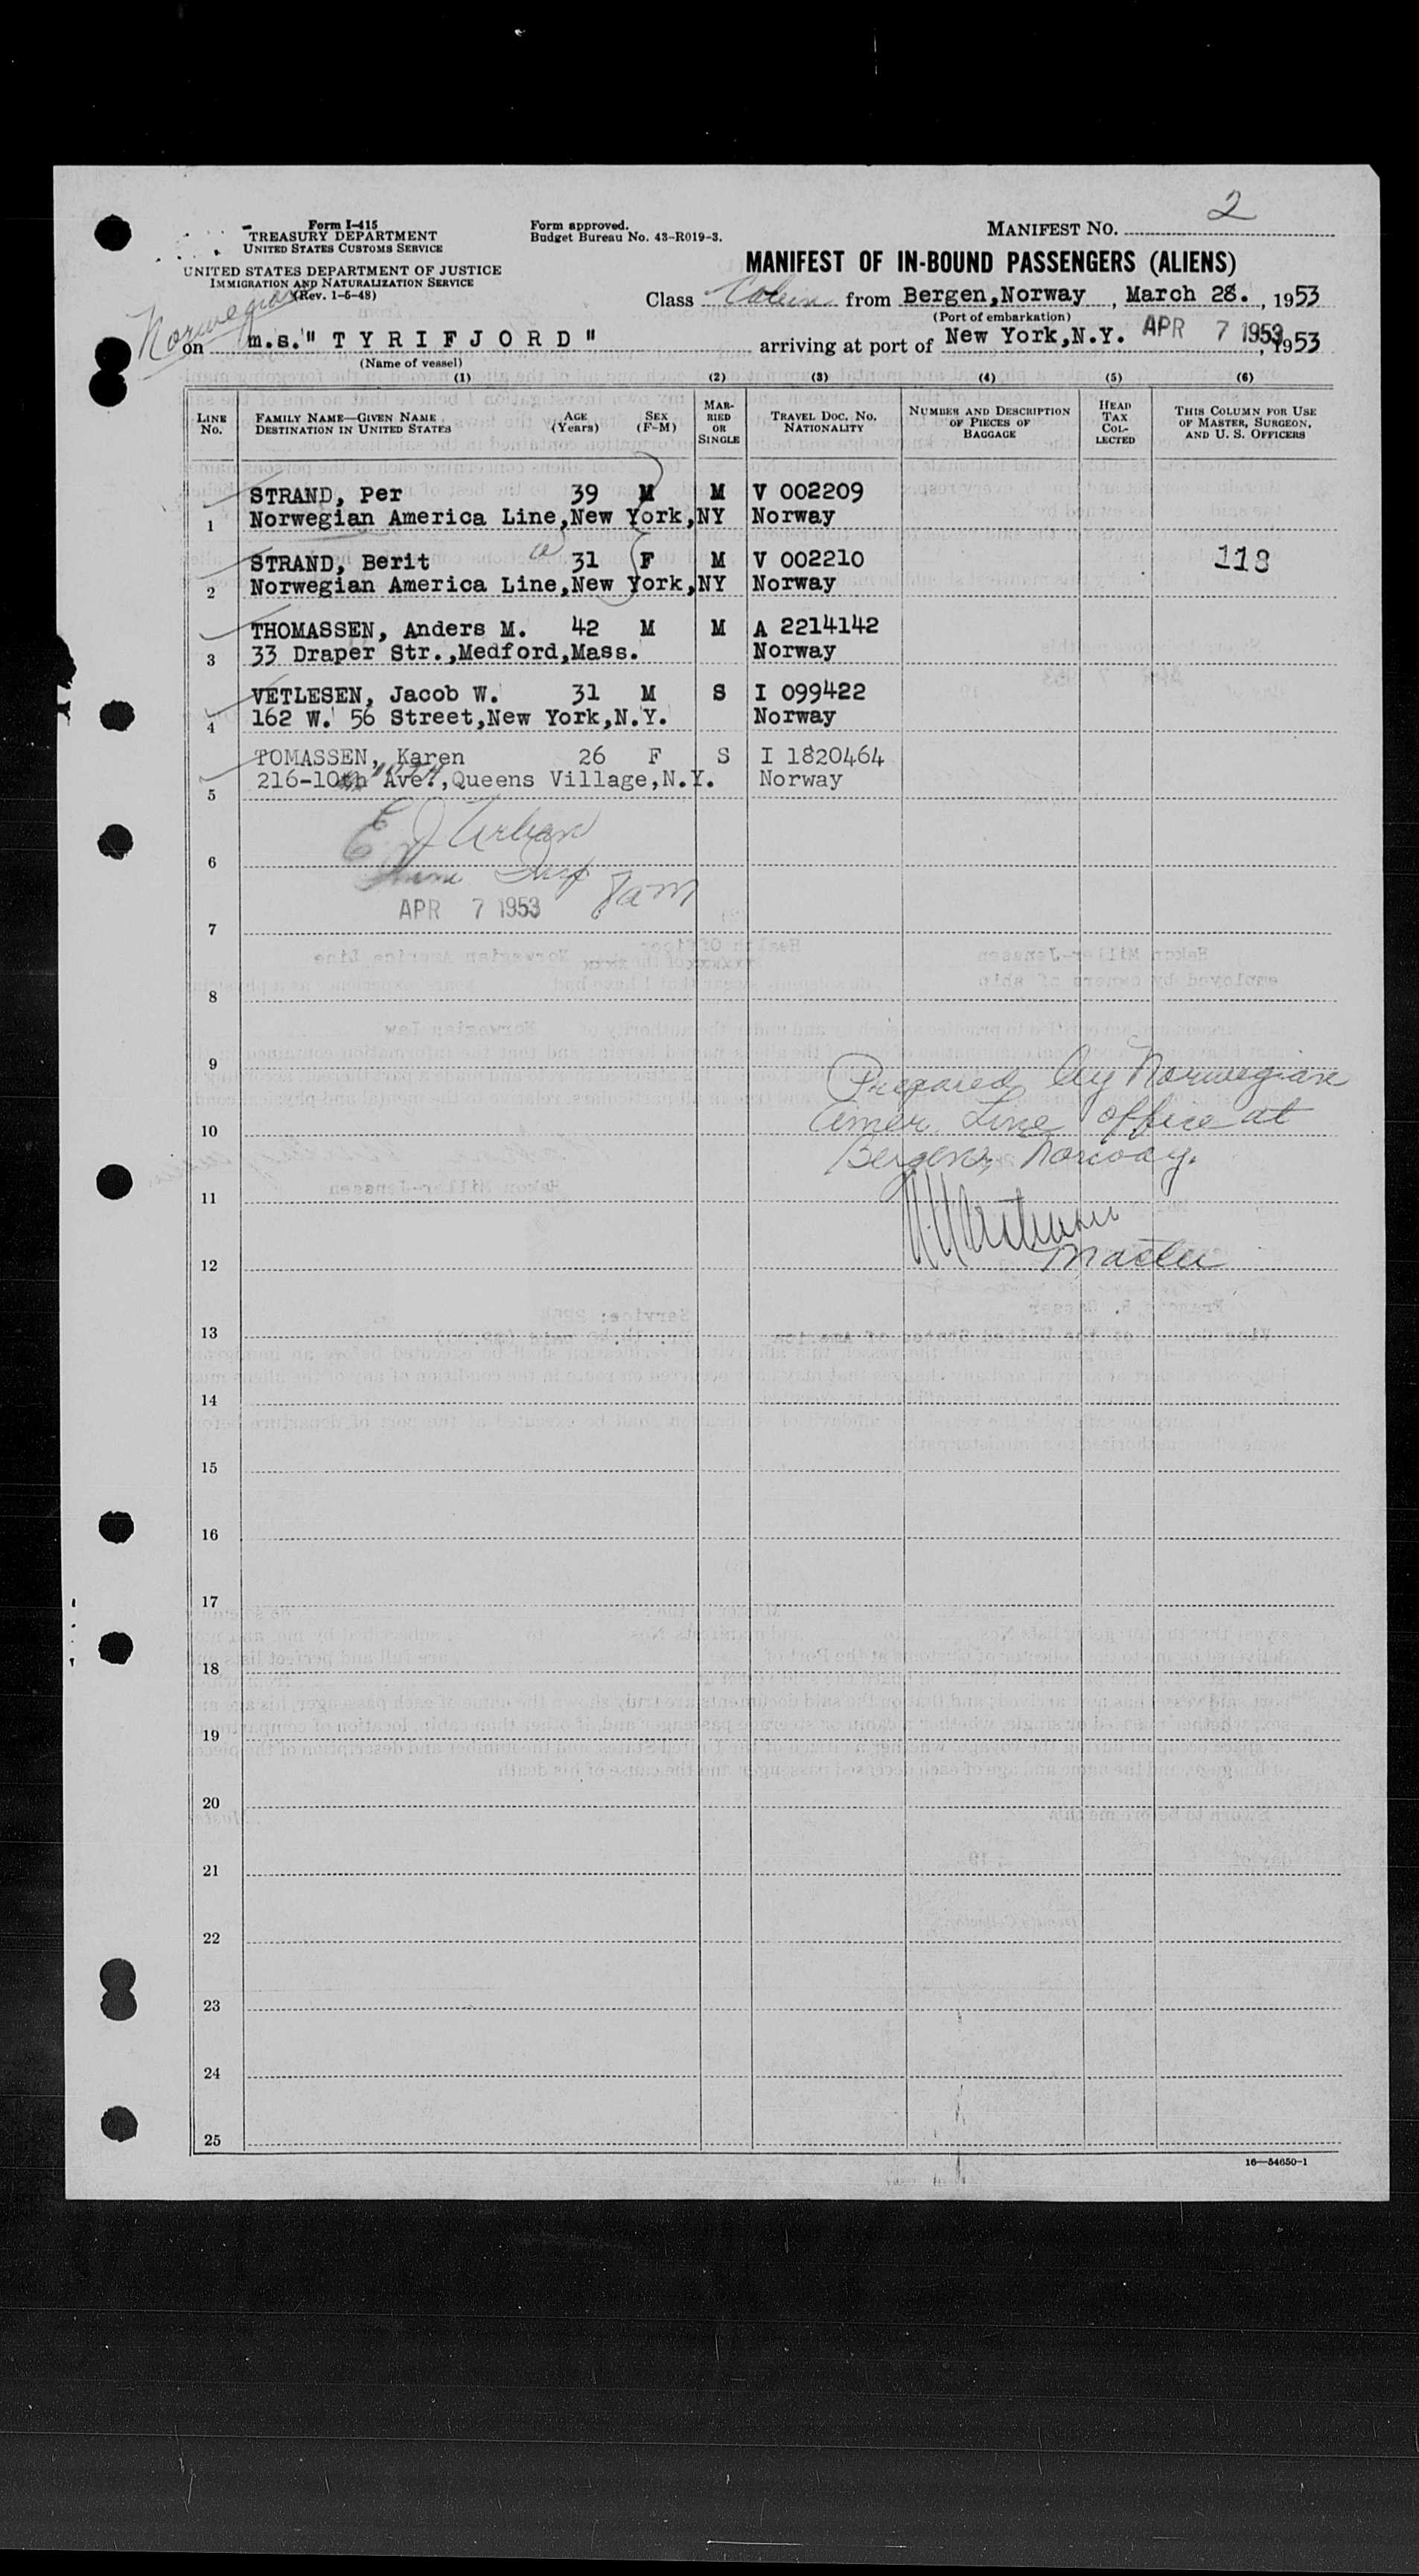 Form I-415
TREASURY DEPARTMENT
UNITED STATES CUSTOMS SERVICE
UNITED STATES DEPARTMENT OF JUSTICE
IMMIGRATION AND NATURALIZATION SERVICE
(Rev. 1-5-48)
Form approved.
Budget Bureau No. 43-R019-3.
MANIFEST No. 2
MANIFEST OF IN-BOUND PASSENGERS (ALIENS)
Class from Bergen,Norway , March 28. , 1953
(Port of embarkation)
Norwegian
on m.s." T Y R I F J O R D " arriving at port of New York,N.Y. APR 7 1953, 1953
(Name of vessel)
(1) (2) (3) (4) (5) (6)
LINE No. FAMILY NAME—GIVEN NAME DESTINATION IN UNITED STATES AGE (Years) SEX (F-M) MARRIED OR SINGLE TRAVEL DOC. NO. NATIONALITY NUMBER AND DESCRIPTION OF PIECES OF BAGGAGE HEAD TAX COLLECTED THIS COLUMN FOR USE OF MASTER, SURGEON, AND U. S. OFFICERS
STRAND, Per 39 M M V 002209
1 Norwegian America Line,New York,NY Norway
STRAND, Berit 31 F M V 002210 118
2 Norwegian America Line,New York,NY Norway
THOMASSEN, Anders M. 42 M M A 2214142
3 33 Draper Str.,Medford,Mass. Norway
VETLESEN, Jacob W. 31 M S I 099422
4 162 W. 56 Street,New York,N.Y. Norway
TOMASSEN, Karen 26 F S I 1820464
5 216-10th Ave.,Queens Village,N.Y. Norway
E J Urban
6
Imm Insp
APR 7 1953
7
8
9
Prepared by Norwegian
Amer. Line office at
10
Bergen, Norway.
11
Master
12
13
14
15
16
17
18
19
20
21
22
23
24
25
16—54650-1